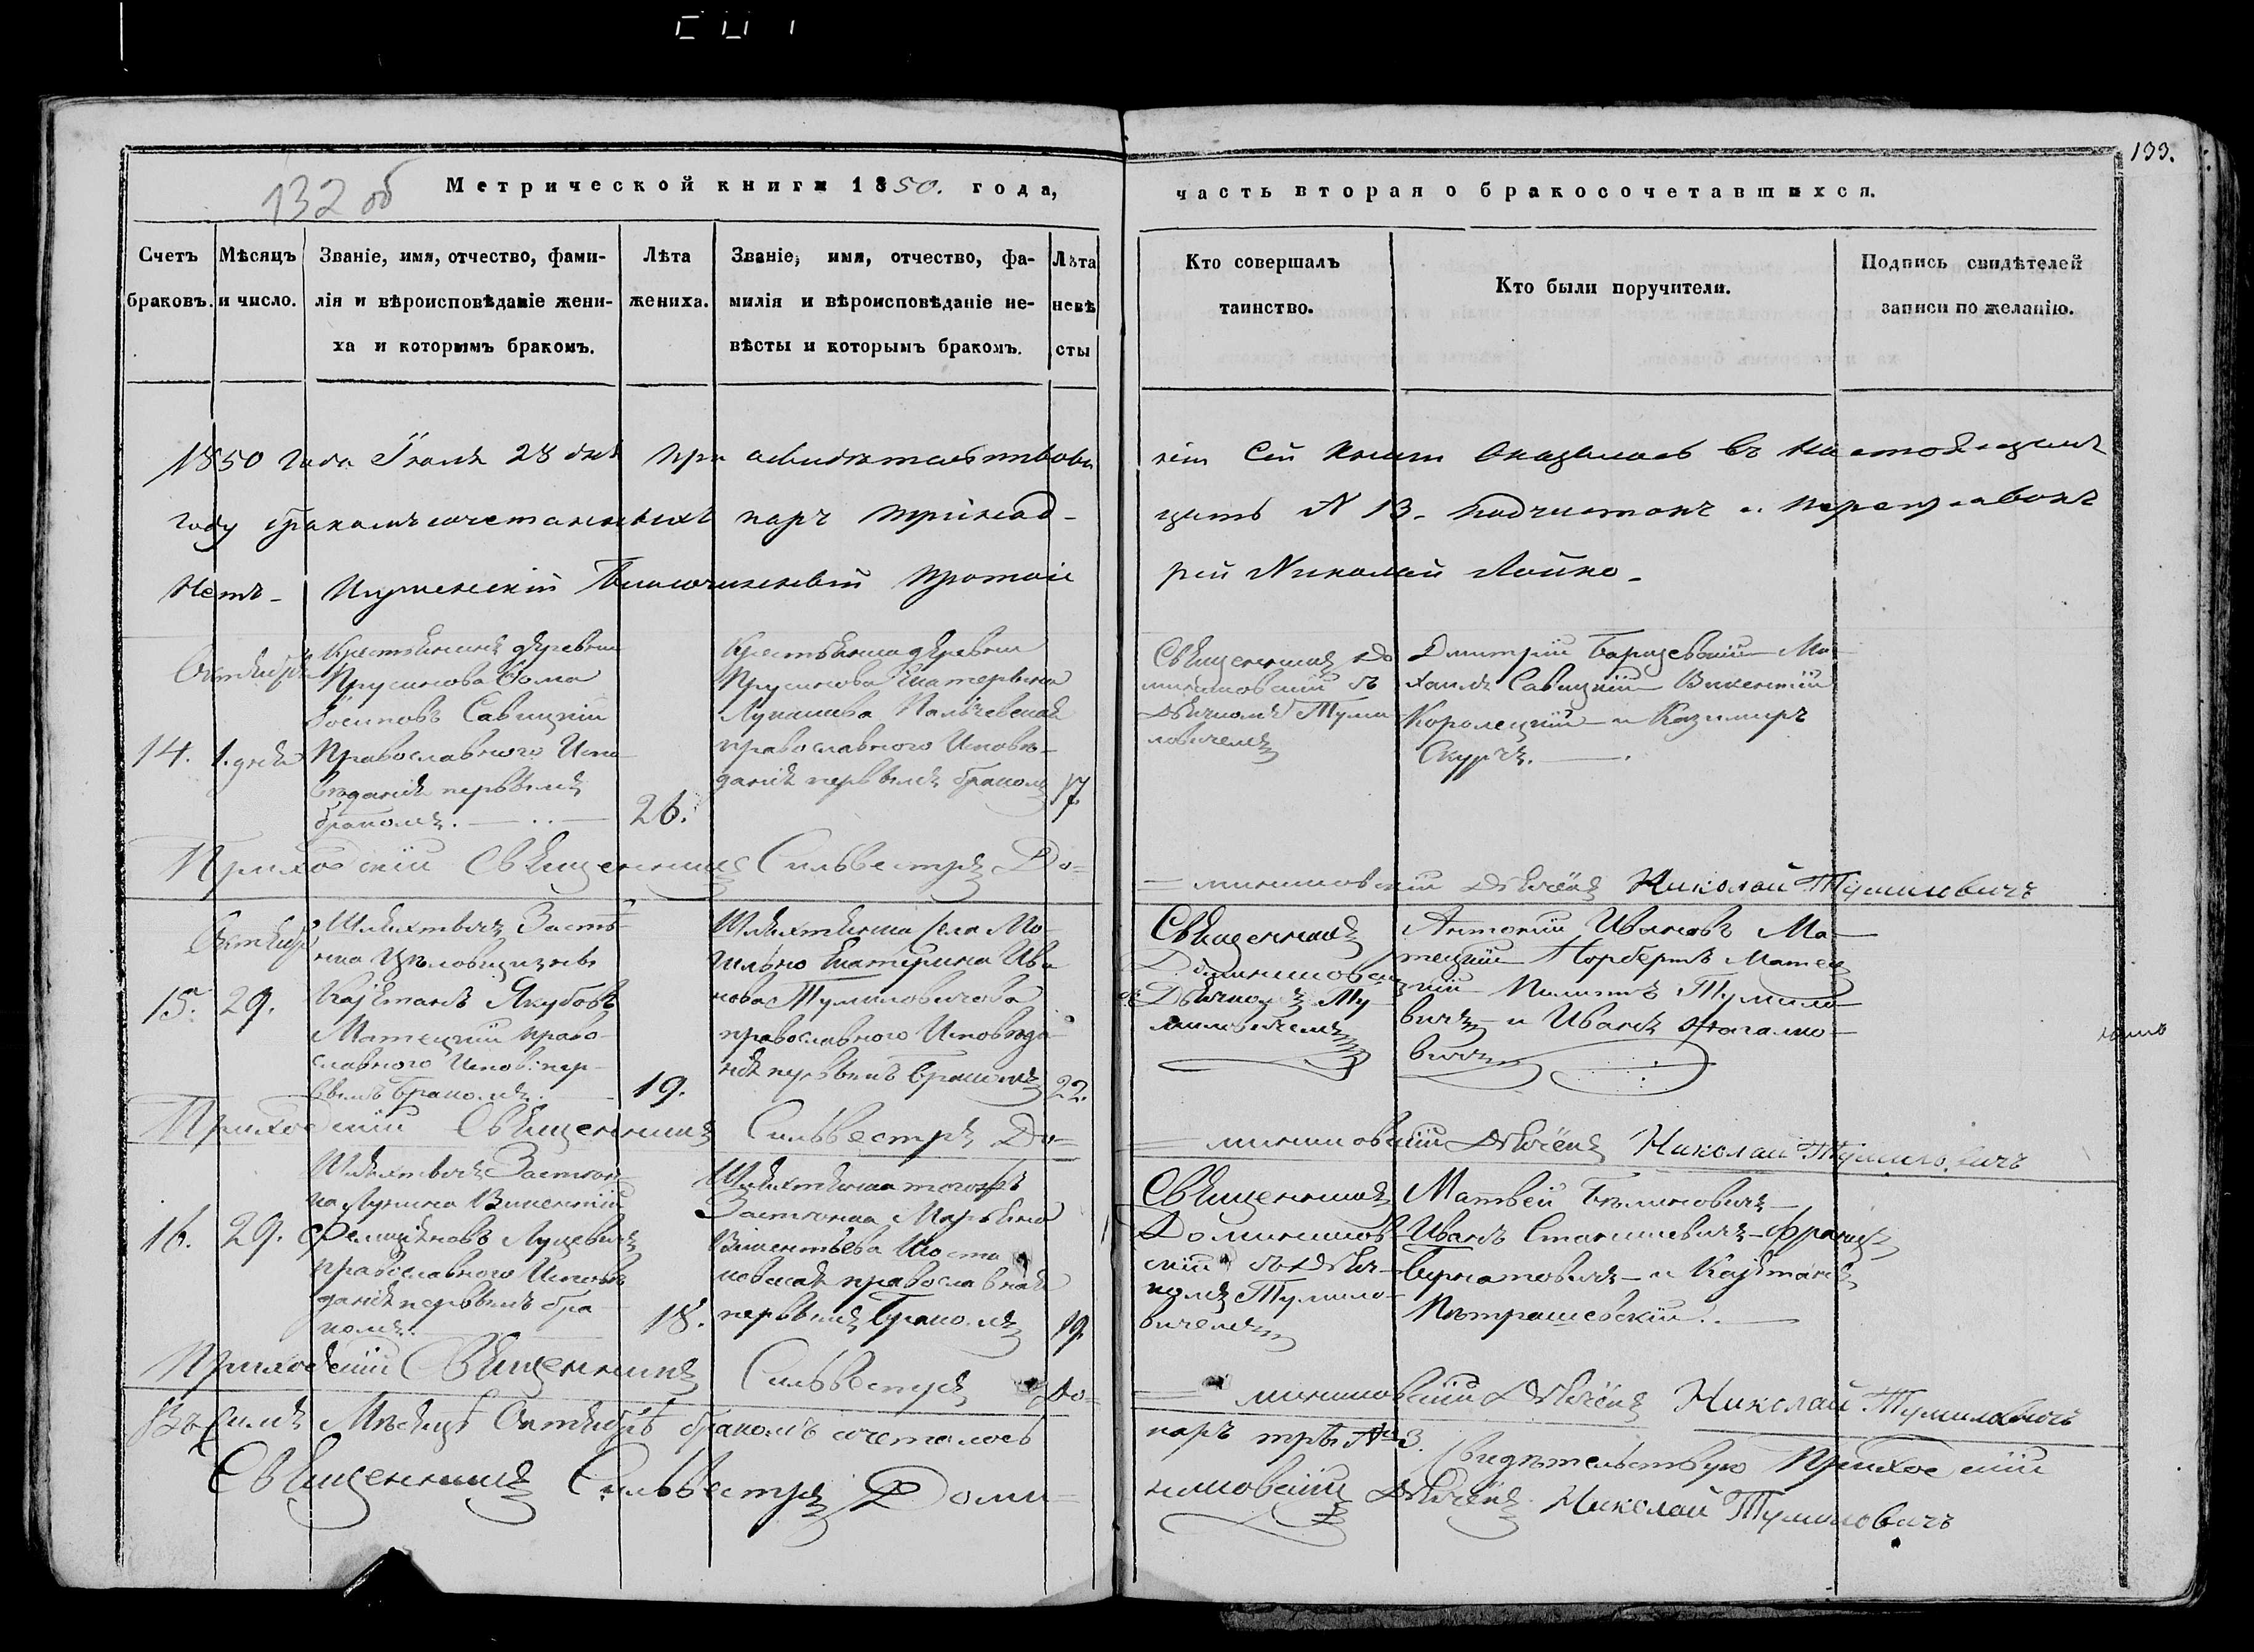 132 об
133.
Метрической книги 1850. года, часть вторая о бракосочетавшихся.
Счетъ браковъ.
Мѣсяцъ и число.
Званіе, имя, отчество, фами-
лія и вѣроисповѣданіе жени-
ха и которымъ бракомъ.
Лѣта
жениха.
Званіе, имя, отчество, фа-
милія и вѣроисповѣданіе не-
вѣсты и которымъ бракомъ.
Лѣта
невѣ
сты
Кто совершалъ
таинство.
Кто были поручители.
Подпись свидѣтелей
записи по желанію.
1850 года Іюля 28 дня при освидѣтельствова
ніи сей книги оказалось въ настоящемъ
году бракомъ сочетанныхъ паръ тринад-
цать N 13. подчистокъ и переправокъ
нетъ - Игуменскій Благочинный Протоіе
рей Николай Лойко.
Октября
14.
1. дня
Крестьянинъ деревни
Прусинова Ѳома
Іосиповъ Савицкій
Православнаго Испо
вѣданія первымъ
бракомъ.
26.
Крестьянка деревни
Прусинова Екатерина
Лукашева
православнаго Исповѣ-
данія первымъ бракомъ
17
Священникъ До
миниковскій съ
Дьячкомъ Туми
ловичемъ
Дмитрій Ми
хаилъ Савицкій Викентій
Королецкій и Казимиръ
Скурчъ.
Приходскій Священникъ Сильвестръ До=
=миниковскій Дьячёкъ Николай Тумиловичъ
Октябр
15.
29.
Шляхтичъ Засте-
нка
Каэтанъ Якубовъ
Матецкій право-
славнаго Исповѣ: пер-
вымъ бракомъ.
19.
Шляхтянка села Мо-
гильно Екатерина Ива
нова Тумиловичова
православнаго Исповѣда
нія первымъ бракомъ
22.
Священникъ
Доминиковскій
съ Дьячкомъ Ту-
миловичемъ
Антоній Ивановъ Ма-
тецкій Норбертъ Матец
кій Тумило-
вичъ и Иванъ
вичъ
Приходскій Священникъ Сильвестръ До=
=миниковскій Дьячёкъ Николай Тумиловичъ
16.
29.
Шляхтичъ Застен
ка Викентій
Фелиціановъ Луцевичъ
православнаго Исповѣ
данія первымъ бра
комъ.
18.
Шляхтянка тогожъ
Застенка Марьяна
Викентьева
православнаго
первымъ бракомъ
19
Священникъ
Домиников-
скій съ Дьяч-
комъ Тумило-
вичемъ
Матвей
Иванъ Станишевичъ Францъ
Бернатовичъ и Каэтанъ
Петрашевскій.
Приходскій Священникъ Сильвестръ До=
=миниковскій Дьячёкъ Николай Тумиловичъ
Въ семъ Мѣсяцѣ Октябрѣ бракомъ сочеталось
паръ три № 3. Свидѣтельствую Приходскій
Священникъ Сильвестръ Доми=
никовскій Дьячёкъ Николай Тумиловичъ